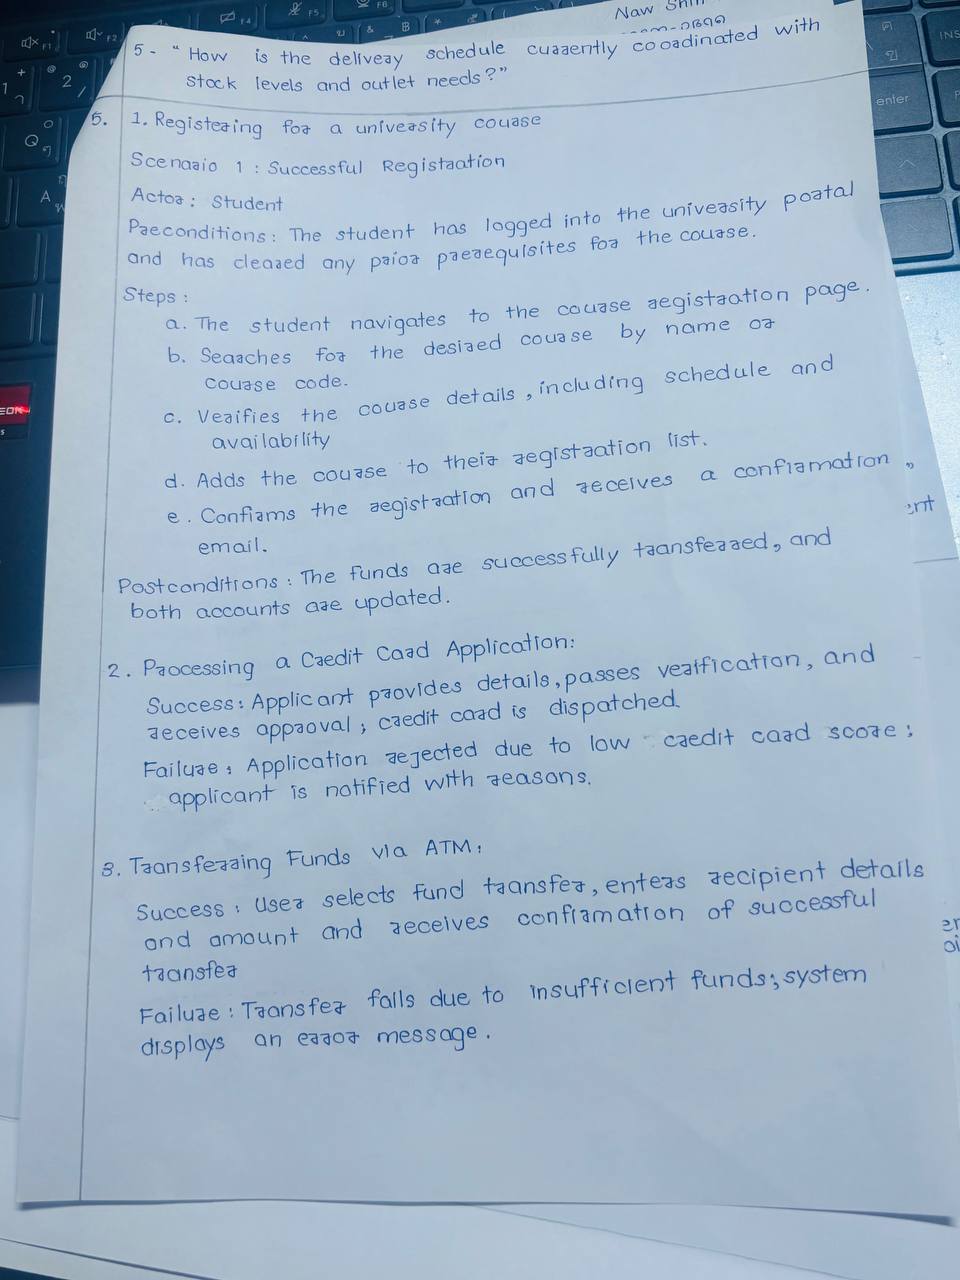 Naw
5 - " How is the delivery schedule currently cooordinated with
stock levels and outlet needs?"
5. 1. Registering for a university course
Scenario 1 : Successful Registration
Actor : Student
Preconditions : The student has logged into the university portal
and has cleared any prior prerequisites for the course.
Steps :
a. The student navigates to the course registration page.
b. Searches for the desired course by name or
course code.
c. Verifies the course details, including schedule and
availability
d. Adds the course to their registration list.
e. Confirms the registration and receives a confirmation
email.
Postconditions : The funds are successfully transferred, and
both accounts are updated.
2. Processing a Credit Card Application:
Success : Applicant provides details, passes verification, and
receives approval; credit card is dispatched.
Failure : Application rejected due to low credit card score;
applicant is notified with reasons.
3. Transferring Funds via ATM:
Success : User selects fund transfer, enters recipient details
and amount and receives confirmation of successful
transfer
Failure : Transfer fails due to insufficient funds; system
displays an error message.